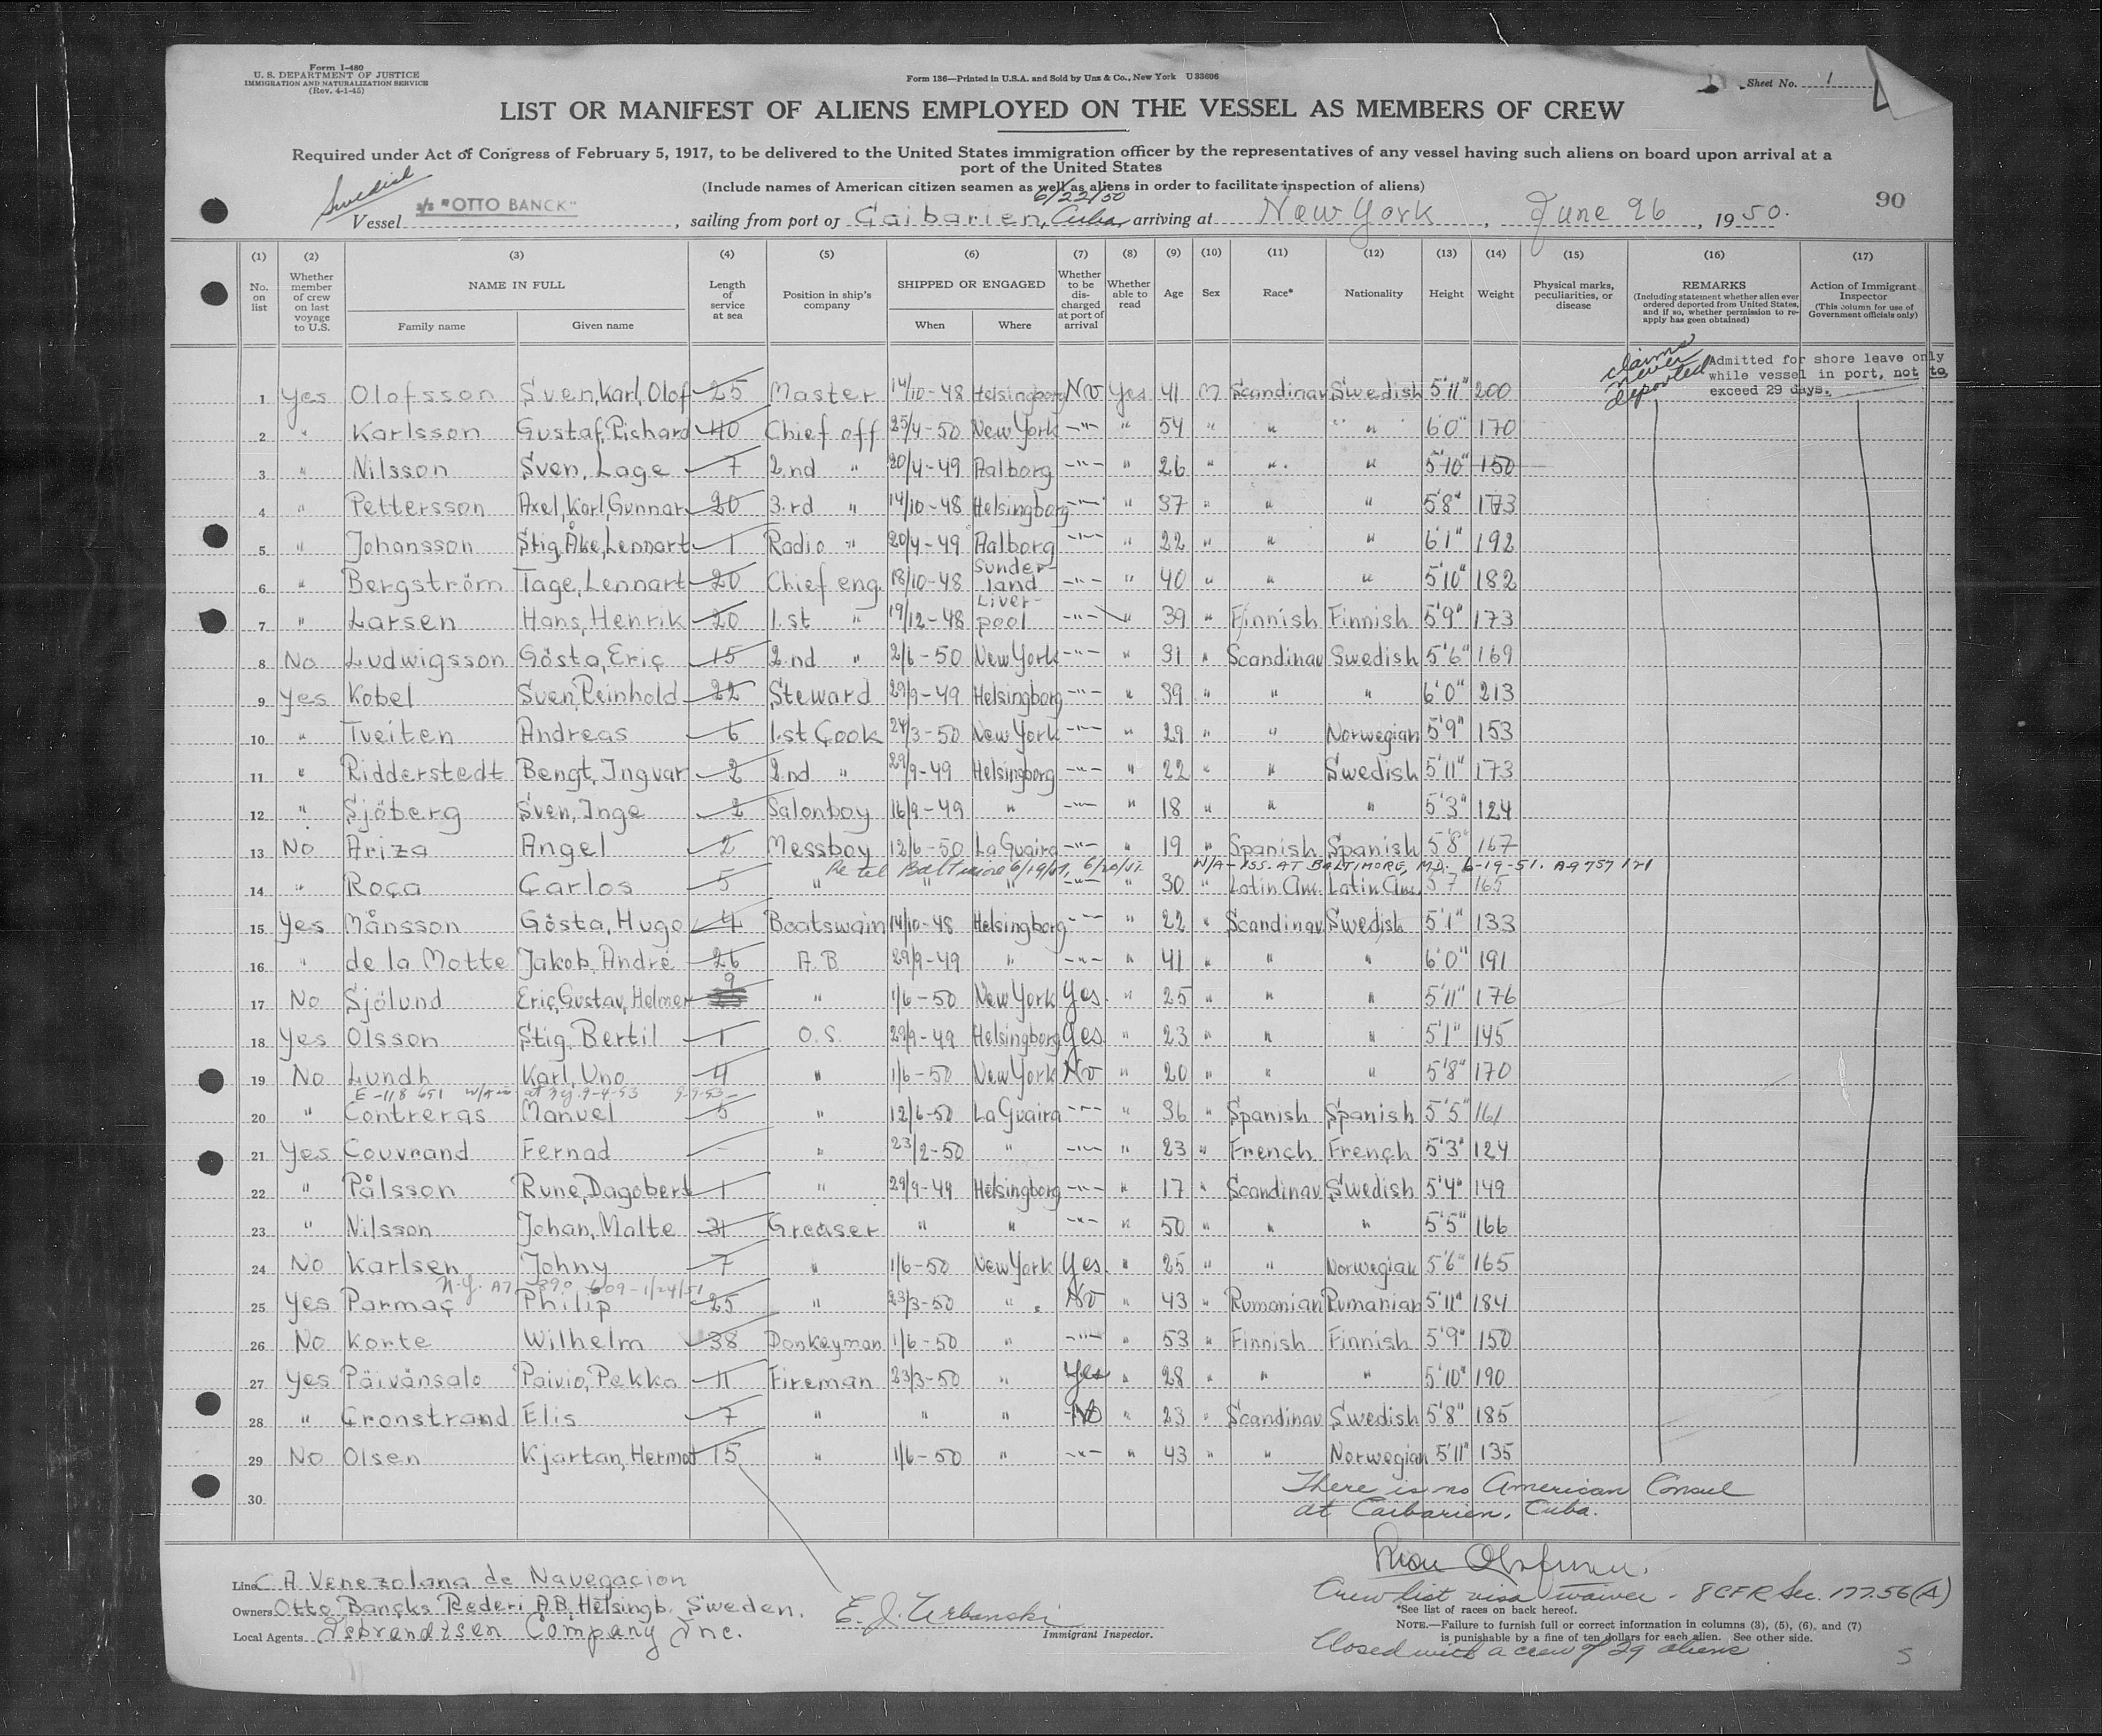 Form I-480
U. S. DEPARTMENT OF JUSTICE
IMMIGRATION AND NATURALIZATION SERVICE
(Rev. 4-1-45)
Form 136—Printed in U.S.A. and Sold by Unz & Co., New York U 33606
Sheet No. 1
LIST OR MANIFEST OF ALIENS EMPLOYED ON THE VESSEL AS MEMBERS OF CREW
Required under Act of Congress of February 5, 1917, to be delivered to the United States immigration officer by the representatives of any vessel having such aliens on board upon arrival at a
port of the United States
(Include names of American citizen seamen as well as aliens in order to facilitate inspection of aliens)
Swedish
6/22/50
90
Vessel s/s "OTTO BANCK", sailing from port of Caibarien, Cuba, arriving at New York, June 26, 1950.
(1) (2) (3) (4) (5) (6) (7) (8) (9) (10) (11) (12) (13) (14) (15) (16) (17)
No. on list
Whether member of crew on last voyage to U.S.
NAME IN FULL
Family name
Given name
Length of service at sea
Position in ship's company
SHIPPED OR ENGAGED
When
Where
Whether to be discharged at port of arrival
Whether able to read
Age
Sex
Race*
Nationality
Height
Weight
Physical marks, peculiarities, or disease
REMARKS
(Including statement whether alien ever ordered deported from United States, and if so, whether permission to re-apply has geen obtained)
Action of Immigrant Inspector
(This column for use of Government officials only)
claims never deported
Admitted for shore leave only
while vessel in port, not to
exceed 29 days.
1 Yes Olofsson Sven, Karl, Olof 25 Master 14/10-48 Helsingborg No Yes 41 M Scandinav Swedish 5'11" 200
2 " Karlsson Gustaf, Richard 40 Chief off 25/4-50 New York -"- " 54 " " " 6'0" 170
3 " Nilsson Sven, Lage 7 2.nd " 20/4-49 Aalborg -"- " 26 " " " 5'10" 150
4 " Pettersson Axel, Karl, Gunnar 20 3.rd " 14/10-48 Helsingborg -"- " 37 " " " 5'8" 173
5 " Johansson Stig, Åke, Lennart 1 Radio " 20/4-49 Aalborg -"- " 22 " " " 6'1" 192
6 " Bergström Tage, Lennart 20 Chief eng. 18/10-48 Sunderland -"- " 40 " " " 5'10" 182
7 " Larsen Hans, Henrik 20 1.st " 19/12-48 Liverpool -"- " 39 " Finnish Finnish 5'9" 173
8 No Ludwigsson Gösta, Eric 15 2.nd " 2/6-50 New York -"- " 31 " Scandinav Swedish 5'6" 169
9 Yes Kobel Sven, Reinhold 22 Steward 29/9-49 Helsingborg -"- " 39 " " " 6'0" 213
10 " Tveiten Andreas 6 1.st Cook 24/3-50 New York -"- " 29 " " Norwegian 5'9" 153
11 " Ridderstedt Bengt, Ingvar 2 2.nd " 29/9-49 Helsingborg -"- " 22 " " Swedish 5'11" 173
12 " Sjöberg Sven, Inge 2 Salonboy 16/9-49 " -"- " 18 " " " 5'3" 124
13 No Ariza Angel 2 Messboy 12/6-50 La Guaira -"- " 19 " Spanish Spanish 5'8" 167
Re tel Baltimore 6/19/51, 6/20/51. W/A-ISS. AT BALTIMORE, MD. 6-19-51. A9757121
14 " Roca Carlos 5 " " " -"- " 30 " Latin Am. Latin Am. 5'7 165
15 Yes Månsson Gösta, Hugo 4 Boatswain 14/10-48 Helsingborg -"- " 22 " Scandinav Swedish 5'1" 133
16 " de la Motte Jakob, André 26 A.B 29/9-49 " -"- " 41 " " " 6'0" 191
17 No Sjölund Eric, Gustav, Helmer 9 " 1/6-50 New York Yes " 25 " " " 5'11" 176
18 Yes Olsson Stig, Bertil 1 O.S. 29/9-49 Helsingborg Yes " 23 " " " 5'1" 145
19 No Lundh Karl, Uno 4 " 1/6-50 New York No " 20 " " " 5'8" 170
E-118 651 at N.Y. 9-4-53 9-9-53
20 " Contreras Manuel 5 " 12/6-50 La Guaira -"- " 36 " Spanish Spanish 5'5" 161
21 Yes Couvrand Fernad - " 23/2-50 " -"- " 23 " French French 5'3" 124
22 " Pålsson Rune, Dagobert 1 " 29/9-49 Helsingborg -"- " 17 " Scandinav Swedish 5'4" 149
23 " Nilsson Johan, Malte 31 Greaser " " -"- " 50 " " " 5'5" 166
24 No Karlsen Johny 7 " 1/6-50 New York Yes " 25 " " Norwegian 5'6" 165
N.Y. A7 390 609-1/24/51
25 Yes Parmac Philip 25 " 23/3-50 " No " 43 " Rumanian Rumanian 5'11" 184
26 No Korte Wilhelm 38 Donkeyman 1/6-50 " -"- " 53 " Finnish Finnish 5'9" 150
27 Yes Päivänsalo Paivio, Pekka 11 Fireman 23/3-50 " Yes " 28 " " " 5'10" 190
28 " Cronstrand Elis 7 " " " No " 23 " Scandinav Swedish 5'8" 185
29 No Olsen Kjartan, Hermot 15 " 1/6-50 " -"- " 43 " " Norwegian 5'11" 135
30
There is no American Consul
at Caibarien, Cuba.
Crew list visa waiver - 8 CFR Sec. 177.56(A)
Line C A Venezolana de Navegacion
Owners Otto Bancks Rederi A.B. Helsingb. Sweden.
Local Agents Isbrandtsen Company Inc.
E. J. Urbanski
Immigrant Inspector.
*See list of races on back hereof.
NOTE.—Failure to furnish full or correct information in columns (3), (5), (6), and (7)
is punishable by a fine of ten dollars for each alien. See other side.
Closed with a crew of 29 aliens
5